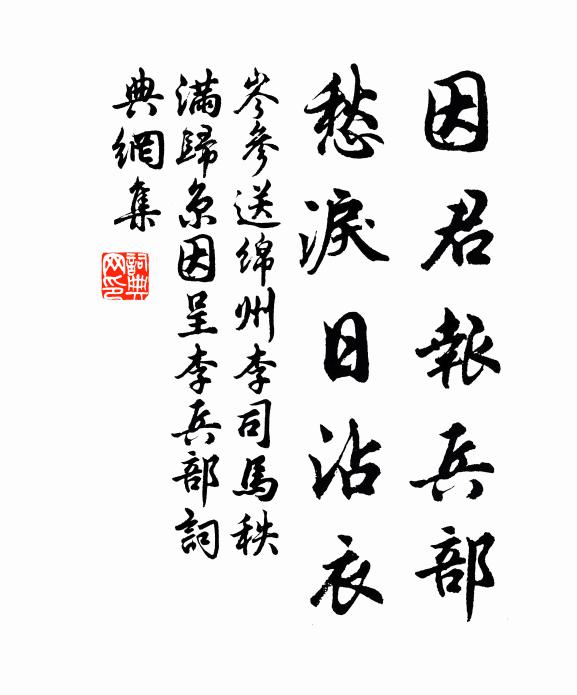 因君報兵部
愁淚日沾衣
岑參送綿州李司馬秩
滿歸京因呈李兵部詞
典網集
詞典网印